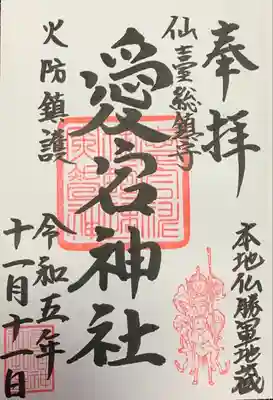 奉拝
仙臺総鎮守
愛宕神社
火防鎮護
本地仏勝軍地蔵
令和五年
十一月十二日